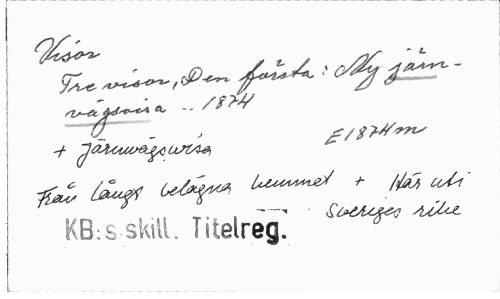 Visor
Tre visor, Den första: Ny järn-
vägsvisa .. 1874
E1874m
+ Järnvägsvisa
Från långt belägna hemmet + Här uti
Sveriges rike
KB:s skill. Titelreg.